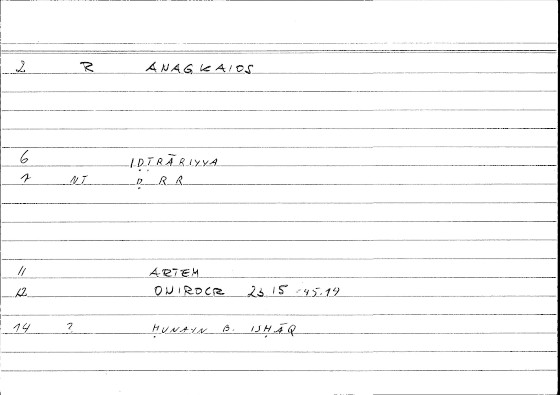 2 R ANAGKAIOS
6 IḌṬRĀRIYYA
7 NT Ḍ R R
11 ARTEM
12 ONIROCR 23 15 45.19
14 ? ḤUNAYN B. ISḤĀQ